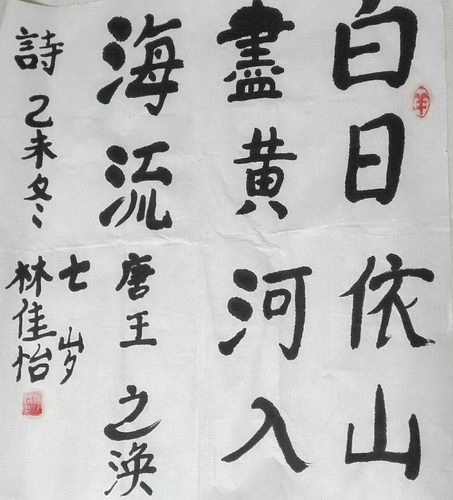 白日依山
盡黄河入
海流 唐王之涣
詩 乙未冬
七岁
林佳怡
羊